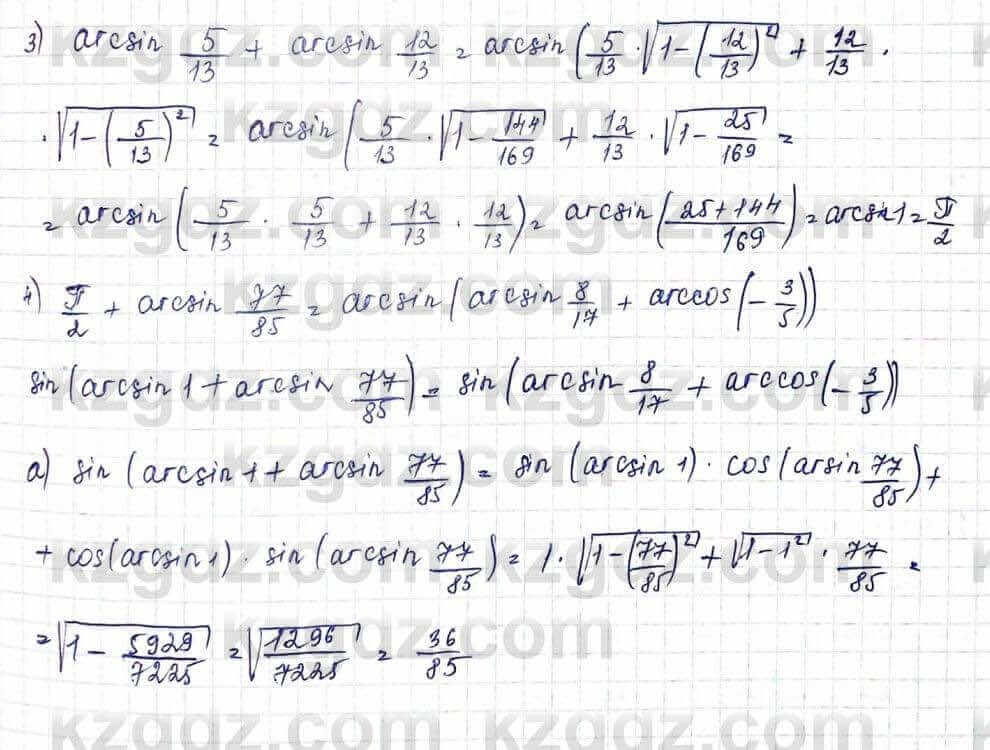 3) arcsin 5/13 + arcsin 12/13 = arcsin (5/13 · √(1-(12/13)²) + 12/13 ·
· √(1-(5/13)²) = arcsin (5/13 · √(1-144/169) + 12/13 · √(1-25/169) =
= arcsin (5/13 · 5/13 + 12/13 · 12/13) = arcsin ((25+144)/169) = arcsin 1 = π/2
4) π/2 + arcsin 77/85 = arcsin (arcsin 8/17 + arccos (-3/5))
sin (arcsin 1 + arcsin 77/85) = sin (arcsin 8/17 + arccos (-3/5))
a) sin (arcsin 1 + arcsin 77/85) = sin (arcsin 1) · cos (arsin 77/85) +
+ cos (arcsin 1) · sin (arcsin 77/85) = 1 · √(1-(77/85)²) + √(1-1²) · 77/85 =
= √(1 - 5929/7225) = √(1296/7225) = 36/85
kzgdz.com